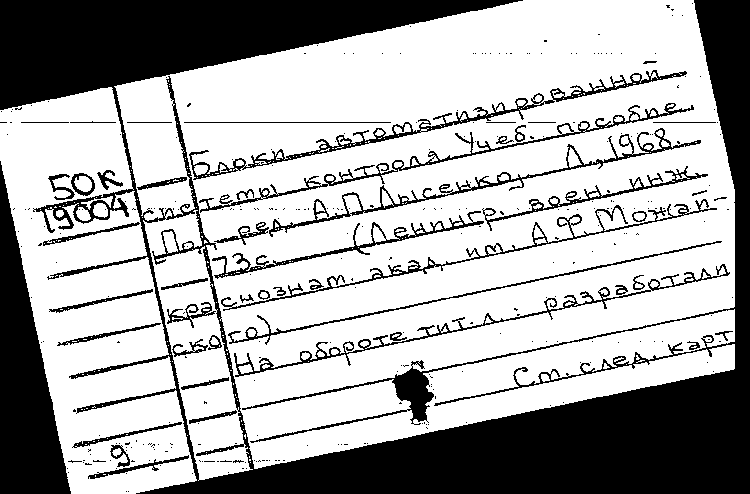 Блоки автоматизированной
50к
19004
системы контроля. Учеб. пособие.
Под ред. А.П.Лысенко, Л., 1968.
73с. (Ленингр. воен. инж.
краснознат. акад. им. А.Ф.Можай-
ского).
На обороте тит.л.: разработали
Ст. след. карт
9